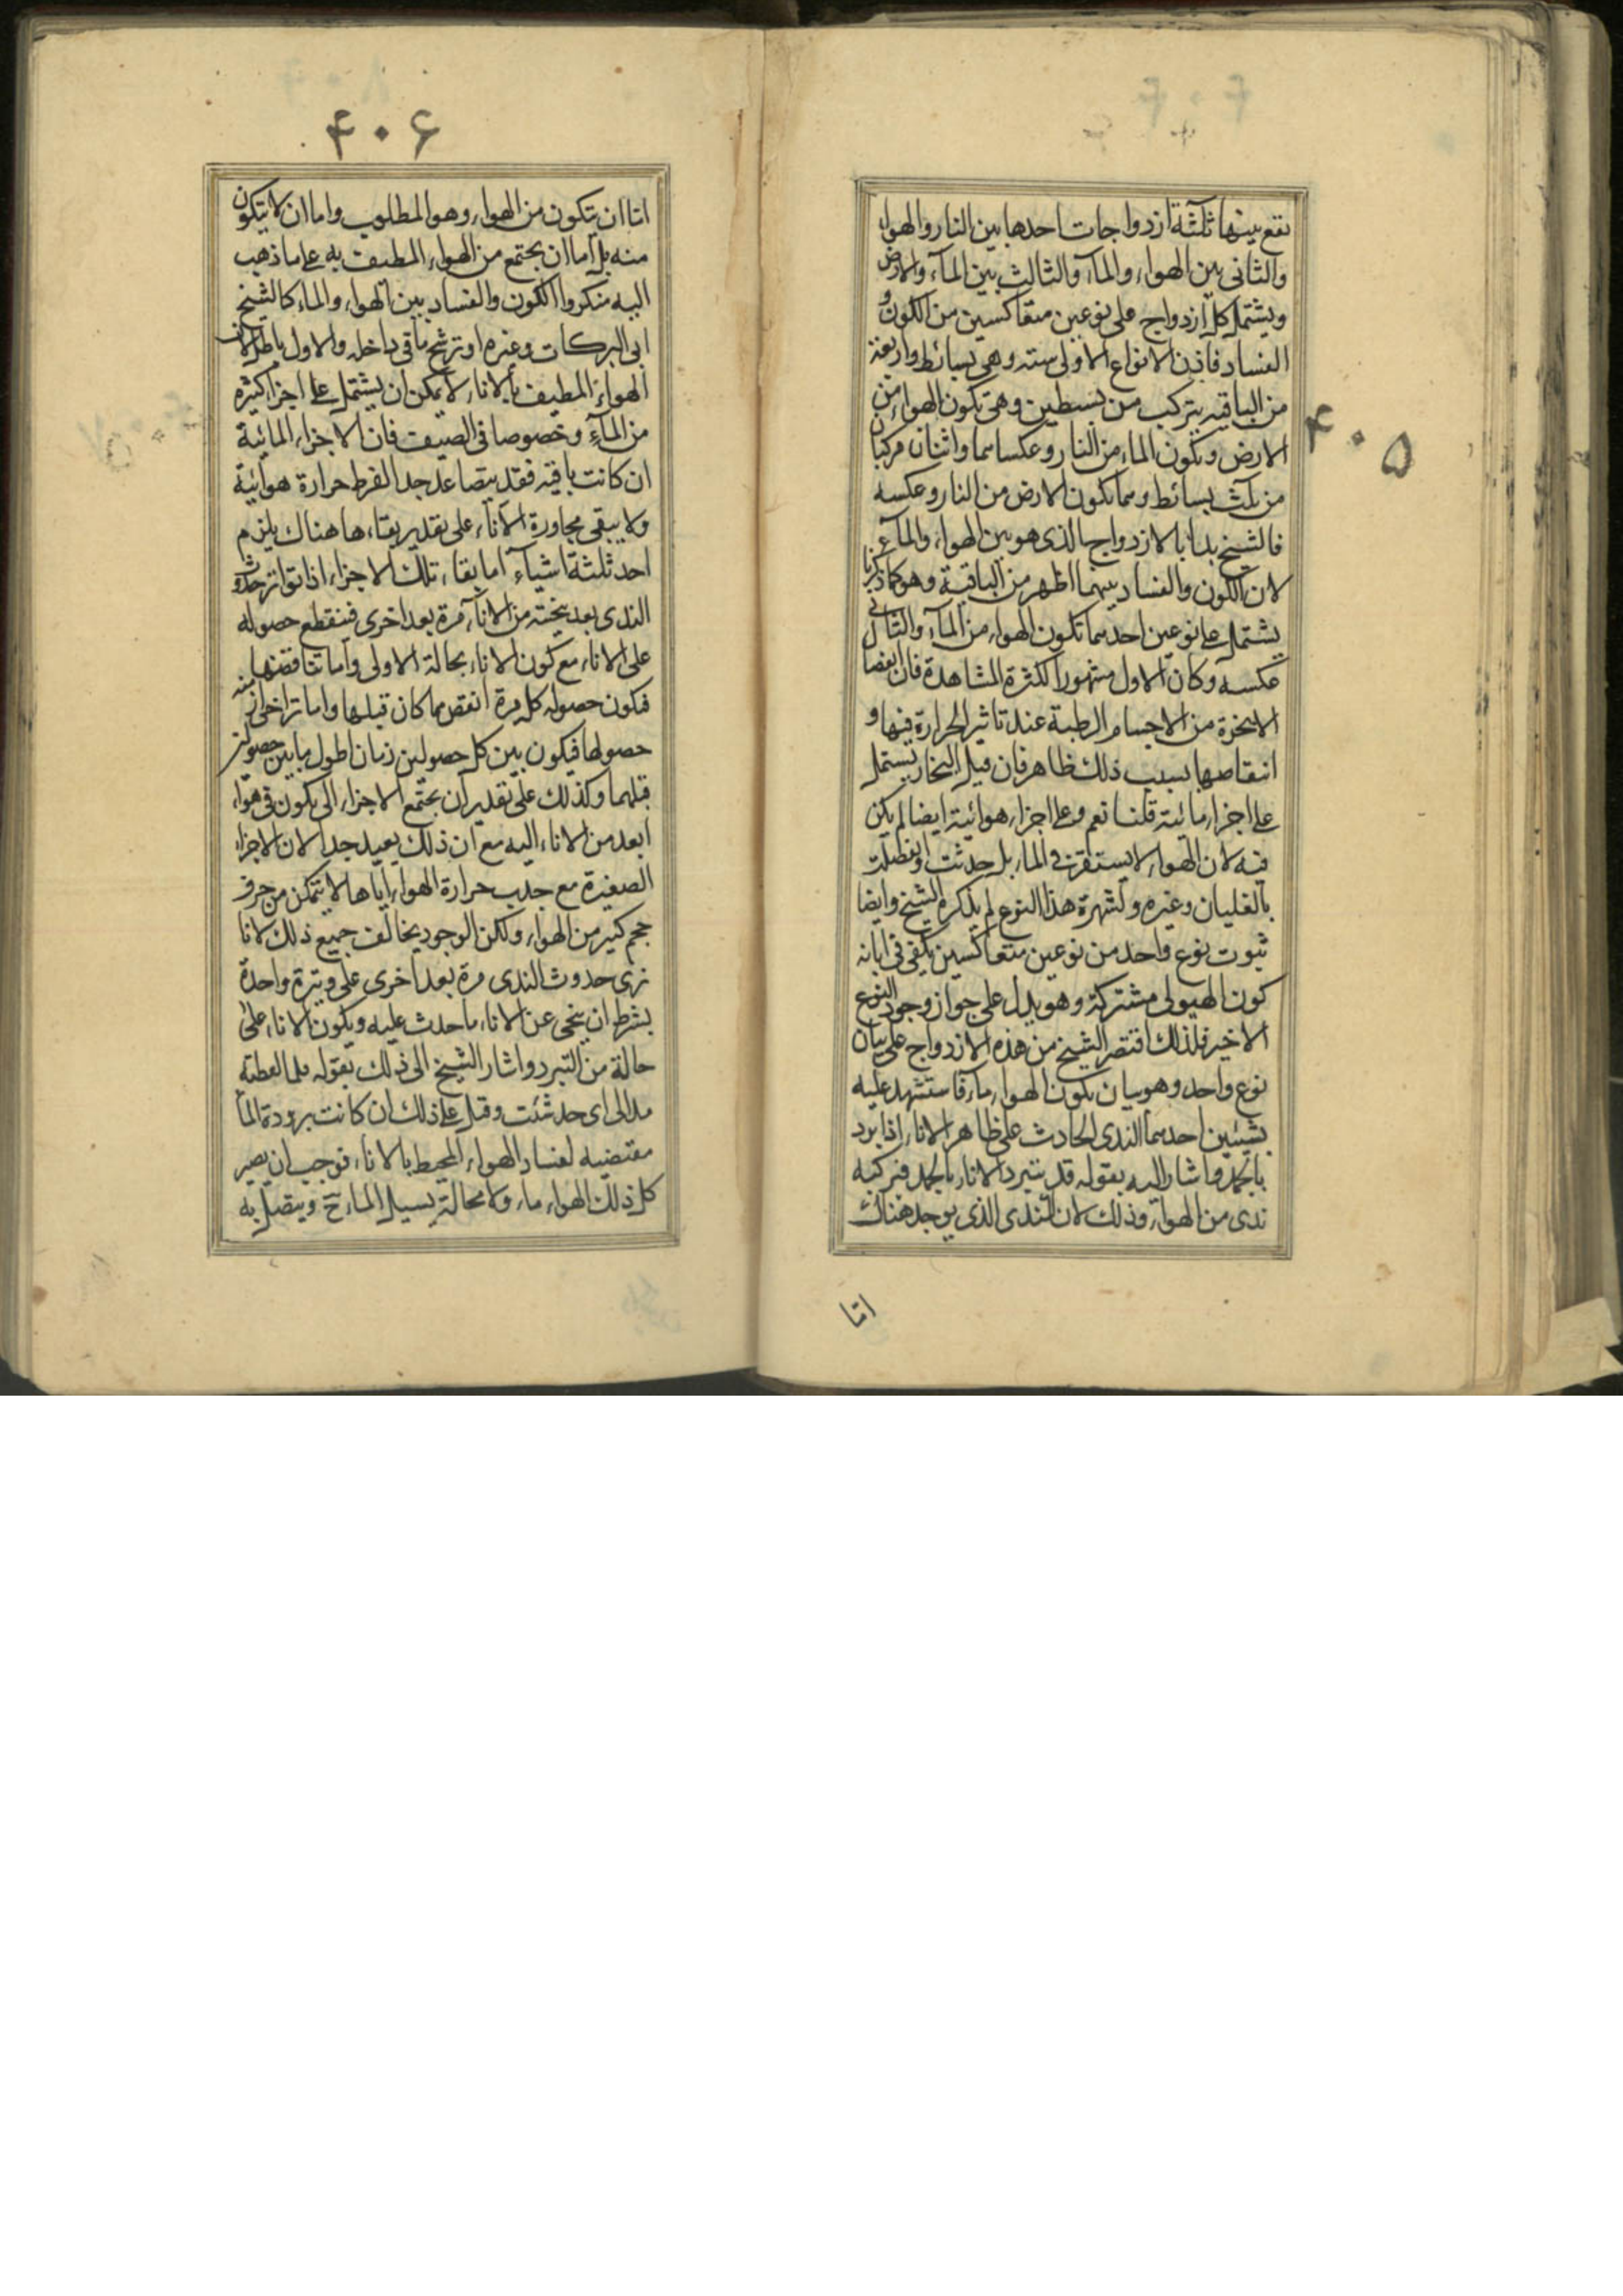 ۴۰۵
تقع بينها ثلثة ازدواجات احدها بين النار والهواء
والثانى بين الهواء والماء والثالث بين الماء والارض
ويشتمل كل ازدواج على نوعين متعاكسين من الكون و
الفساد فاذن الانواع الاولى سته وهى بسائط واربعة
من الباقيه يتركب من بسيطين وهى تكون الهواء من
الارض وتكون الماء من النار وعكساهما واثنان مركبان
من ثلث بسائط وهما تكون الارض من النار وعكسه
فالشيخ بدا بالازدواج الذى هو بين الهواء والماء
لان الكون والفساد بينهما اظهر من الباقية وهو كما ذكرنا
يشتمل على نوعين احدهما تكون الهواء من الماء والثانى
عكسه وكان الاول مشهورا لكثرة المشاهدة فان انفصال
الابخرة من الاجسام الرطبة عند تاثير الحرارة فيها و
انتقاصها بسبب ذلك ظاهر فان قيل البخار يشتمل
على اجزاء مائية قلنا نعم وعلى اجزاء هوائية ايضا لم يكن
فيه لان الهواء لا يستقر فى الماء بل حدثت وانفصلت
بالغليان وغيره ولشهرة هذا النوع لم يذكره الشيخ وايضا
ثبوت نوع واحد من نوعين متعاكسين يكفى فى ابانة
كون الهيولى مشتركة وهو يدل على جواز وجود النوع
الاخير فلذلك اقتصر الشيخ من هذه الازدواج على بيان
نوع واحد وهو بيان تكون الهواء ماء فاستشهد عليه
بشيئين احدهما الندى الحادث على ظاهر الاناء اذا برد
بالجمد واشار اليه بقوله قد يتبرد الاناء بالجمد فيركبه
ندى من الهواء وذلك لان الندى الذى يوجد هناك
اما
۴۰۶
اما ان يتكون من الهواء وهو المطلوب واما ان لا يتكون
منه بل اما ان يجتمع من الهواء المطيف به على ما ذهب
اليه منكروا الكون والفساد بين الهواء والماء كالشيخ
ابى البركات وغيره او ترشح مافى داخله والاول باطل لان
الهواء المطيف بالاناء لا يمكن ان يشتمل على اجزاء كثيره
من الماء وخصوصا فى الصيف فان الاجزاء المائية
ان كانت باقيه فقد يتصاعد جدا لفرط حرارة هوائية
ولا يبقى مجاورة الاناء وعلى تقدير بقاءها هناك يلزم
احد ثلثة اشياء اما بقاء تلك الاجزاء اذا تواتر حدوث
الندى بعد تنحيته من الاناء مرة بعد اخرى فينقطع حصوله
على الاناء مع كون الاناء بحالة الاولى واما تناقصها
فيكون حصوله كل مرة انقص مما كان قبلها واما تراخى ازمنة
حصولها فيكون بين كل حصولين زمان اطول ما بين حصولين
قبلهما وكذلك على تقدير ان يجتمع الاجزاء التى يكون فى هواء
ابعد من الاناء اليه مع ان ذلك بعيد جدا لان الاجزاء
الصغيرة مع جذب حرارة الهواء اياها لا تتمكن من خرق
حجم كثير من الهواء ولكن الوجود يخالف جميع ذلك لانا
نرى حدوث الندى مرة بعد اخرى على وتيرة واحدة
بشرط ان ينحى عن الاناء ما حدث عليه ويكون الاناء على
حالة من التبرد واشار الشيخ الى ذلك بقوله كلما لقطته
مد الى اى حد شئت وقيل على ذلك ان كانت برودة الماء
مقتضيه لفساد الهواء المحيط بالاناء فوجب ان يصير
كل ذلك الهواء ماء ولا محالة يسيل الماء ح ويتصل به